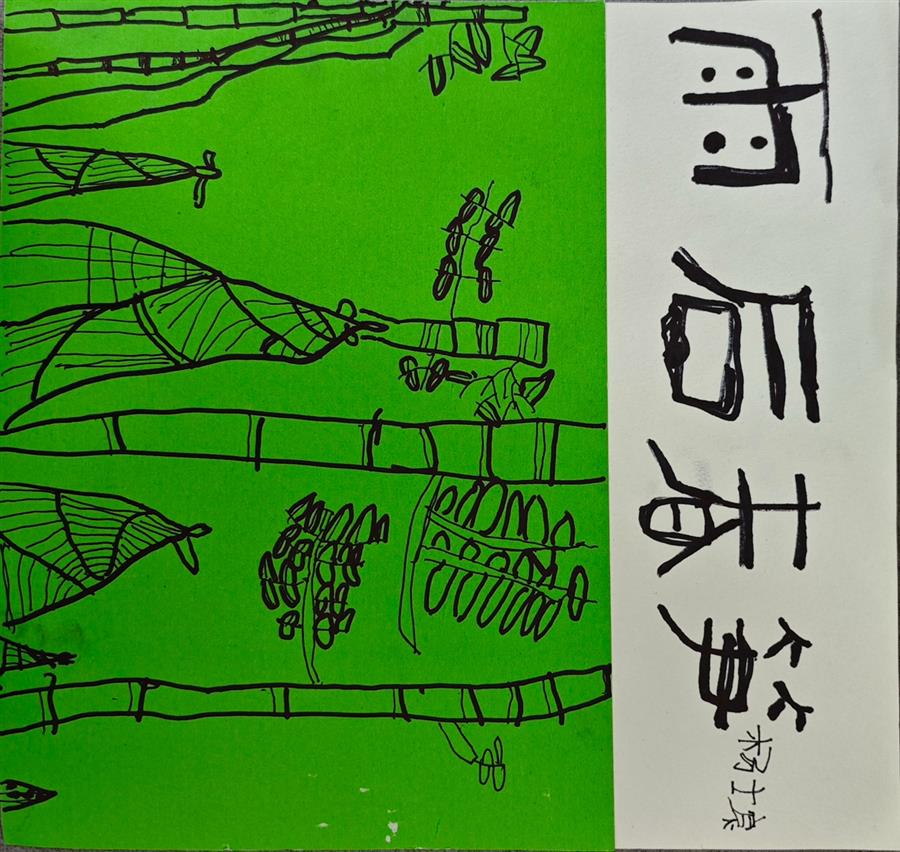 雨后春笋
杨士